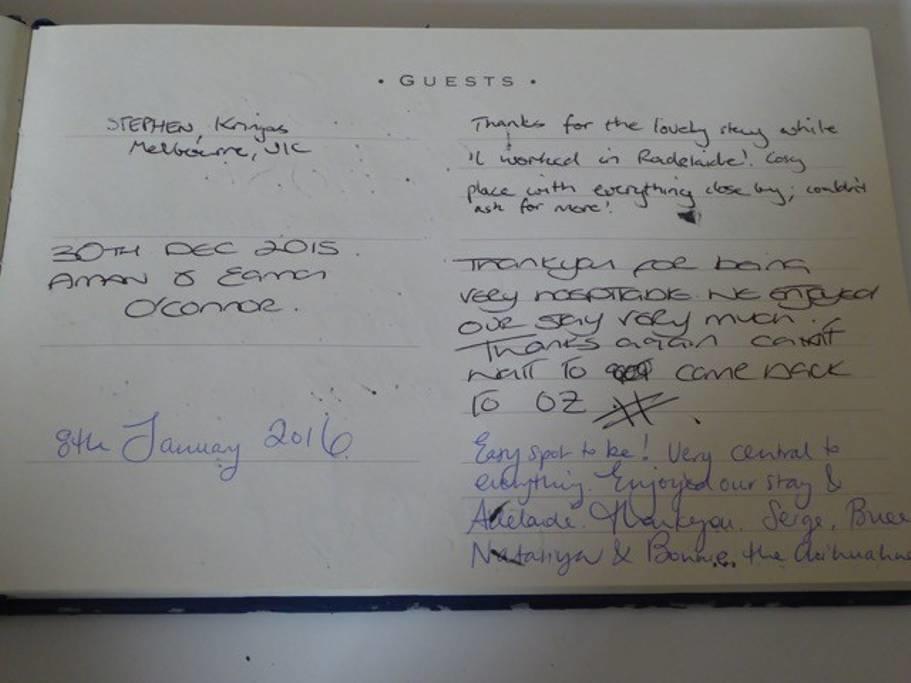 • GUESTS •
STEPHEN,
Melbourne, VIC
Thanks for the lovely stay while
I worked in Radelaide! Cosy
place with everything close by; couldn't
ask for more!
30TH DEC 2015
AMAN &
O'CONNOR.
Thankyou for being
very hospitable. We enjoyed
our stay very much.
Thanks again can't
wait to come back
to OZ
8th January 2016
Easy spot to be! Very central to
everything. Enjoyed our stay &
Adelaide. Thankyou. Serge,
Nataliya & Bonnie, the